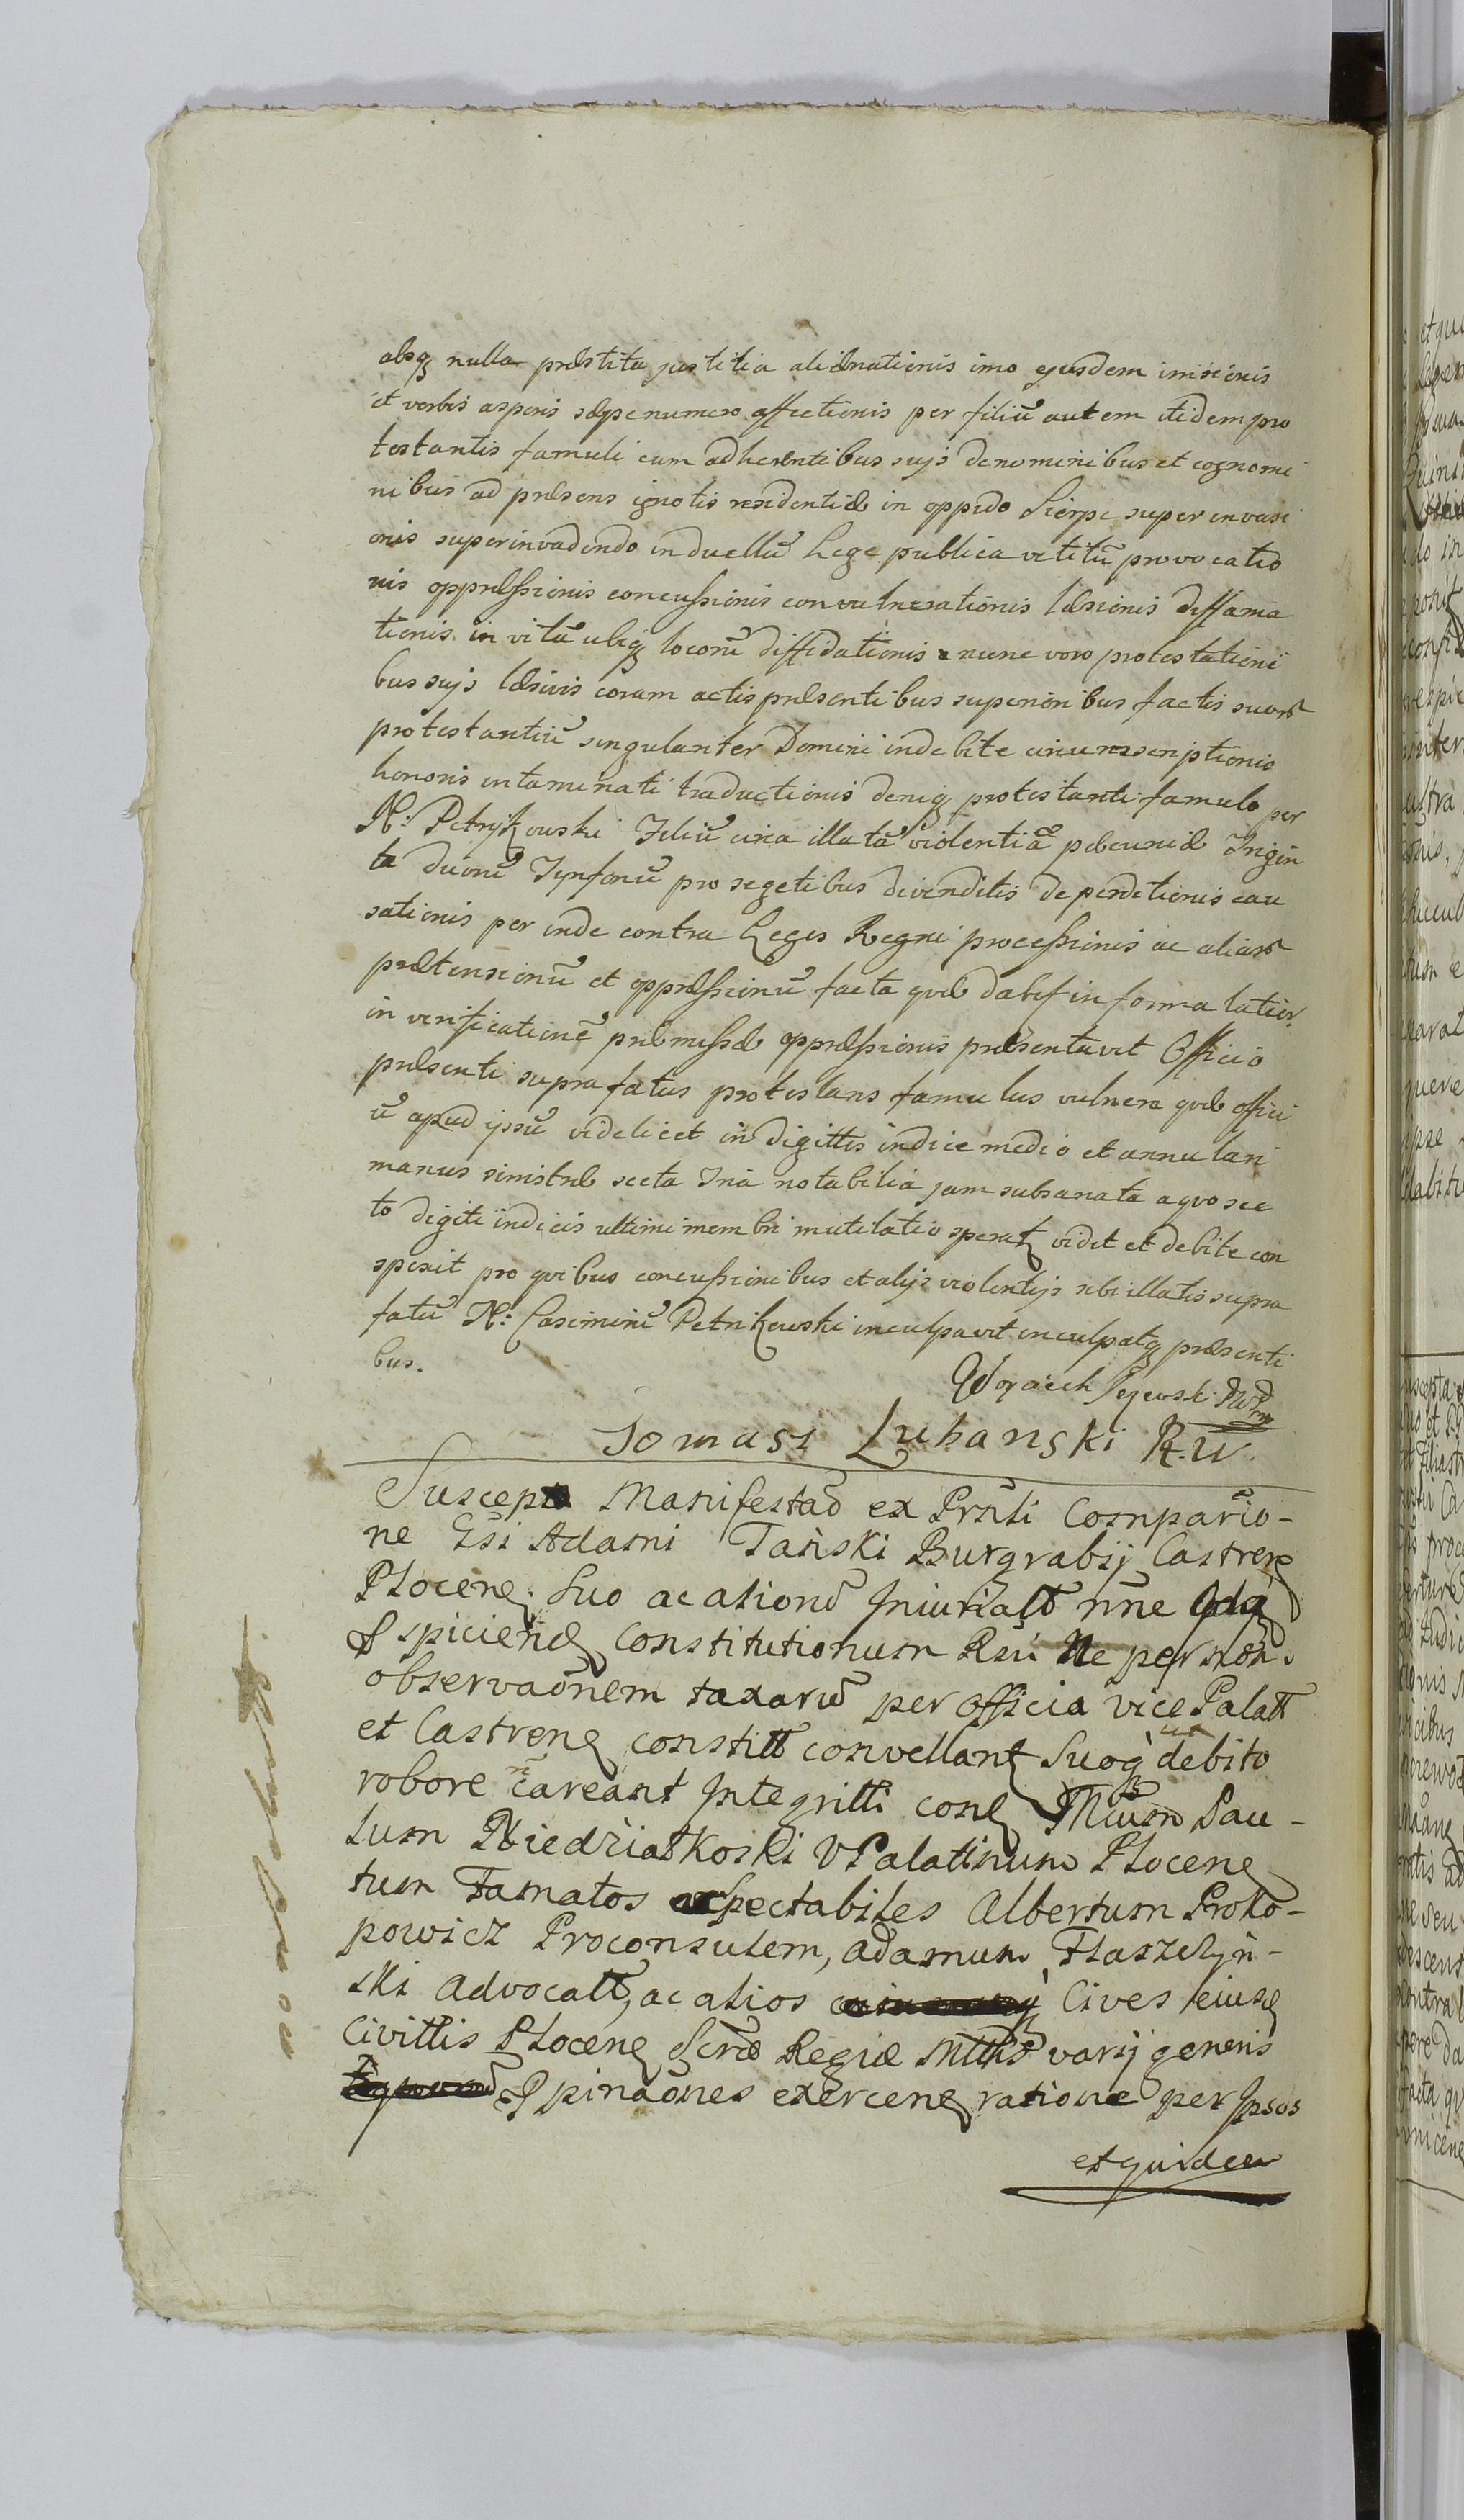 absq nulla præstita justitia alienationis imo ejusdem imisionis
et verbis asperis sæpenumero affectionis per filiū autem itidem pro
testantis famuli cum adherentibus sujs de nominibus et cognomi
nibus ad præsens ignotis residentiæ in oppido Sierpc super invasi
onis superinvadendo in duellū Lege publica vetitū provocatio
nis oppressionis concussionis convulnerationis læsionis diffama
tionis in vitā ubiq locorū diffidationis nunc vero protestationi
bus sujs læsivis coram actis præsentibus superioribus factis suor
protestantiū singulariter Domini indebite circumscriptionis
honoris intaminati traductionis deniq protestanti famulo per
N: Petrykowski Filiū circa illatā violentiā pecuniæ Trigin
ta duorū Tynforū pro segetibus divenditis deperditionis cau
sationis per inde contra Leges Regni processionis ac aliar
prætensionū et oppressionū facta qvæ dabit in forma latior.
in verificationē præmissæ oppressionis præsentavit Officio
præsenti suprafatus protestans famulus vulnera qvæ offici
ū apud ipsū videlicet in digittis indice medio et annulari
manus sinistræ secta Tria notabilia jam subsanata a qvo sec
to digiti indicis ultimi membri mutilatio speratq vidit et debite con
spexit pro qvibus concussionibus et alijs violentijs sibi illatis supra
fatū N: Casimirū Petrikowski inculpavit inculpatq præsenti
bus.
Woyciech
Tomasz Lubanski R.W.
Suscepta Manifestaō ex Prnti Compariō-
ne Gsi Adami Tański Burgrabij Castren
Plocen Suo ac alionō Iniuriatt nne
spicien Constitutionum Rni Ne per non
observaōnem taxarū per officia vice Palatt
et Castren constitt convellant Suoq debito
robore careant Integritti con Mcum Pau-
lum Niedźiałkoski VPalatinum Plocen
tum Famatos Spectabiles Albertum Proko-
powicz Proconsulem, adamum Flaszczyń-
ski advocatt, ac alios Cives eiusd
Civittis Plocen Scræ Regiæ Mttis varij generis
ppinaōnes exercen ratione per Ipsos
et quidem